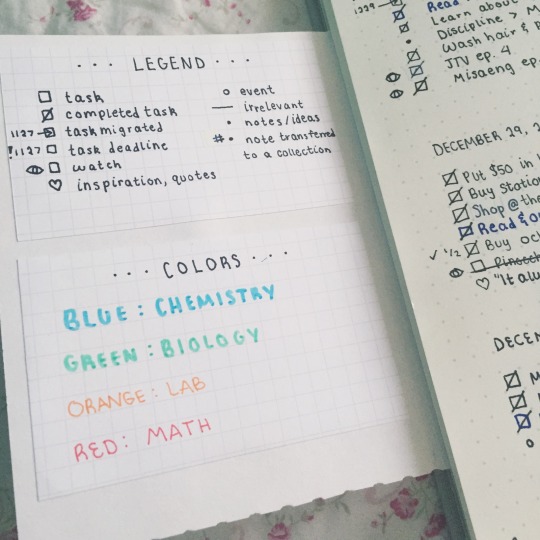 ··· LEGEND ···
task
completed task
1127 task migrated
!1127 task deadline
watch
inspiration, quotes
event
irrelevant
notes/ideas
#• note transferred
to a collection
··· COLORS ···
BLUE: CHEMISTRY
GREEN: BIOLOGY
ORANGE: LAB
RED: MATH
1229
Read
Learn about
Discipline > M
Wash hair &
JTV ep. 4
Misaeng ep.
DECEMBER 29, 2
Put $50 in
Buy Statio
Shop @ the
Read &
1/2 Buy
"It
DECEM